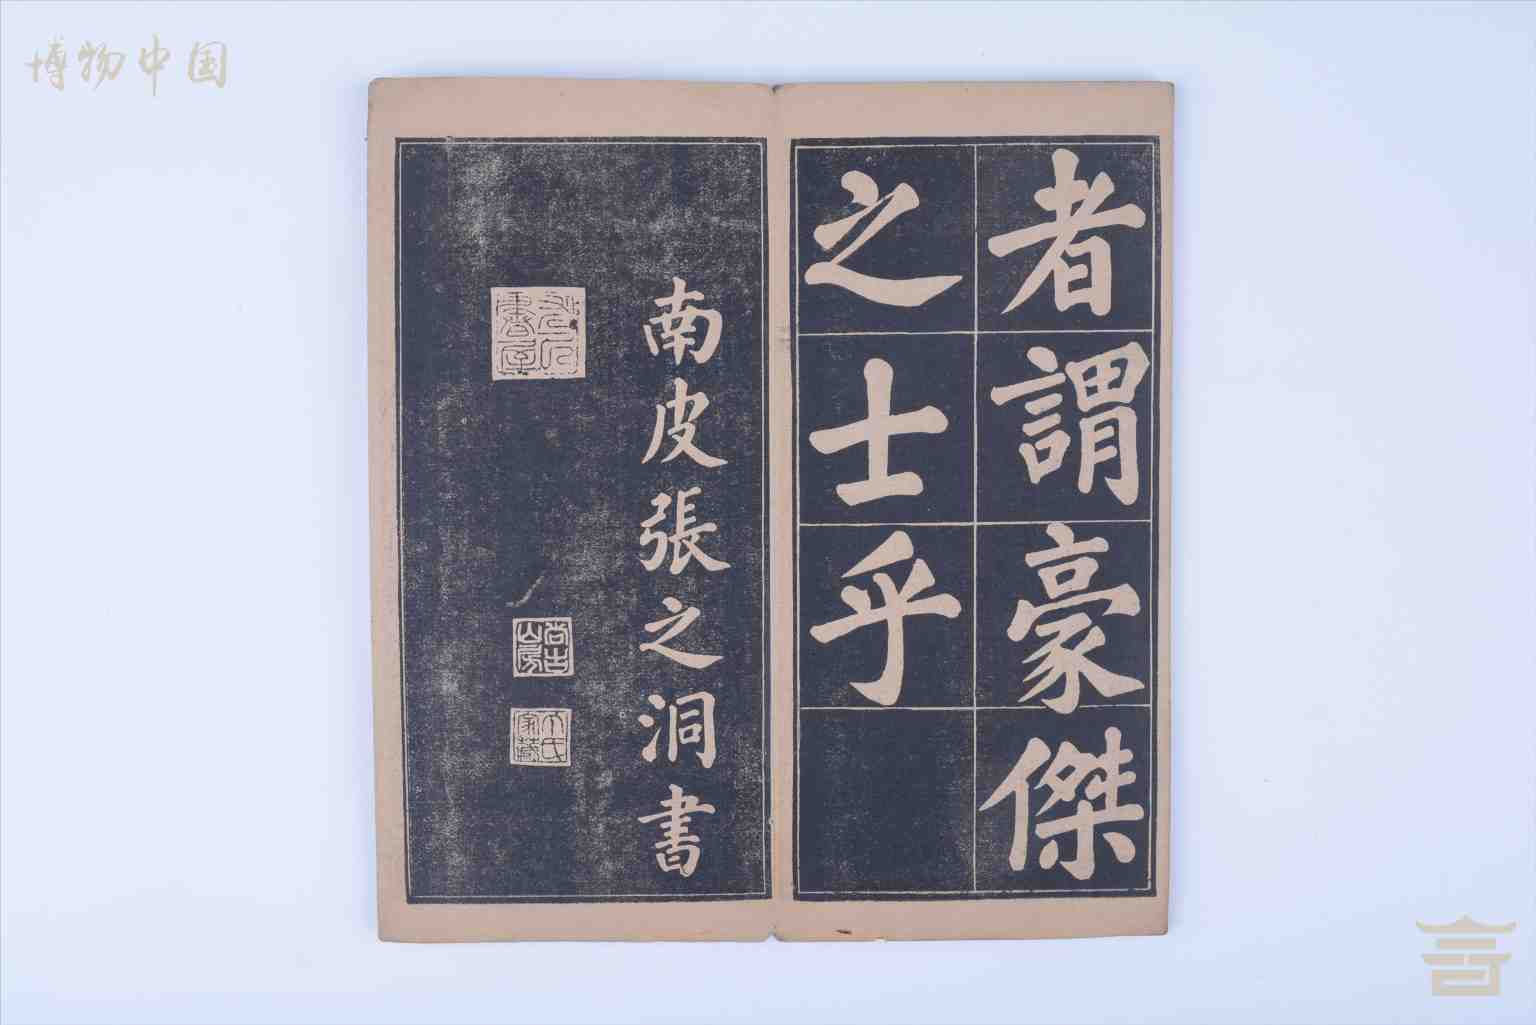 博物中国
者謂豪傑
之士乎
南皮張之洞書
尚古山房